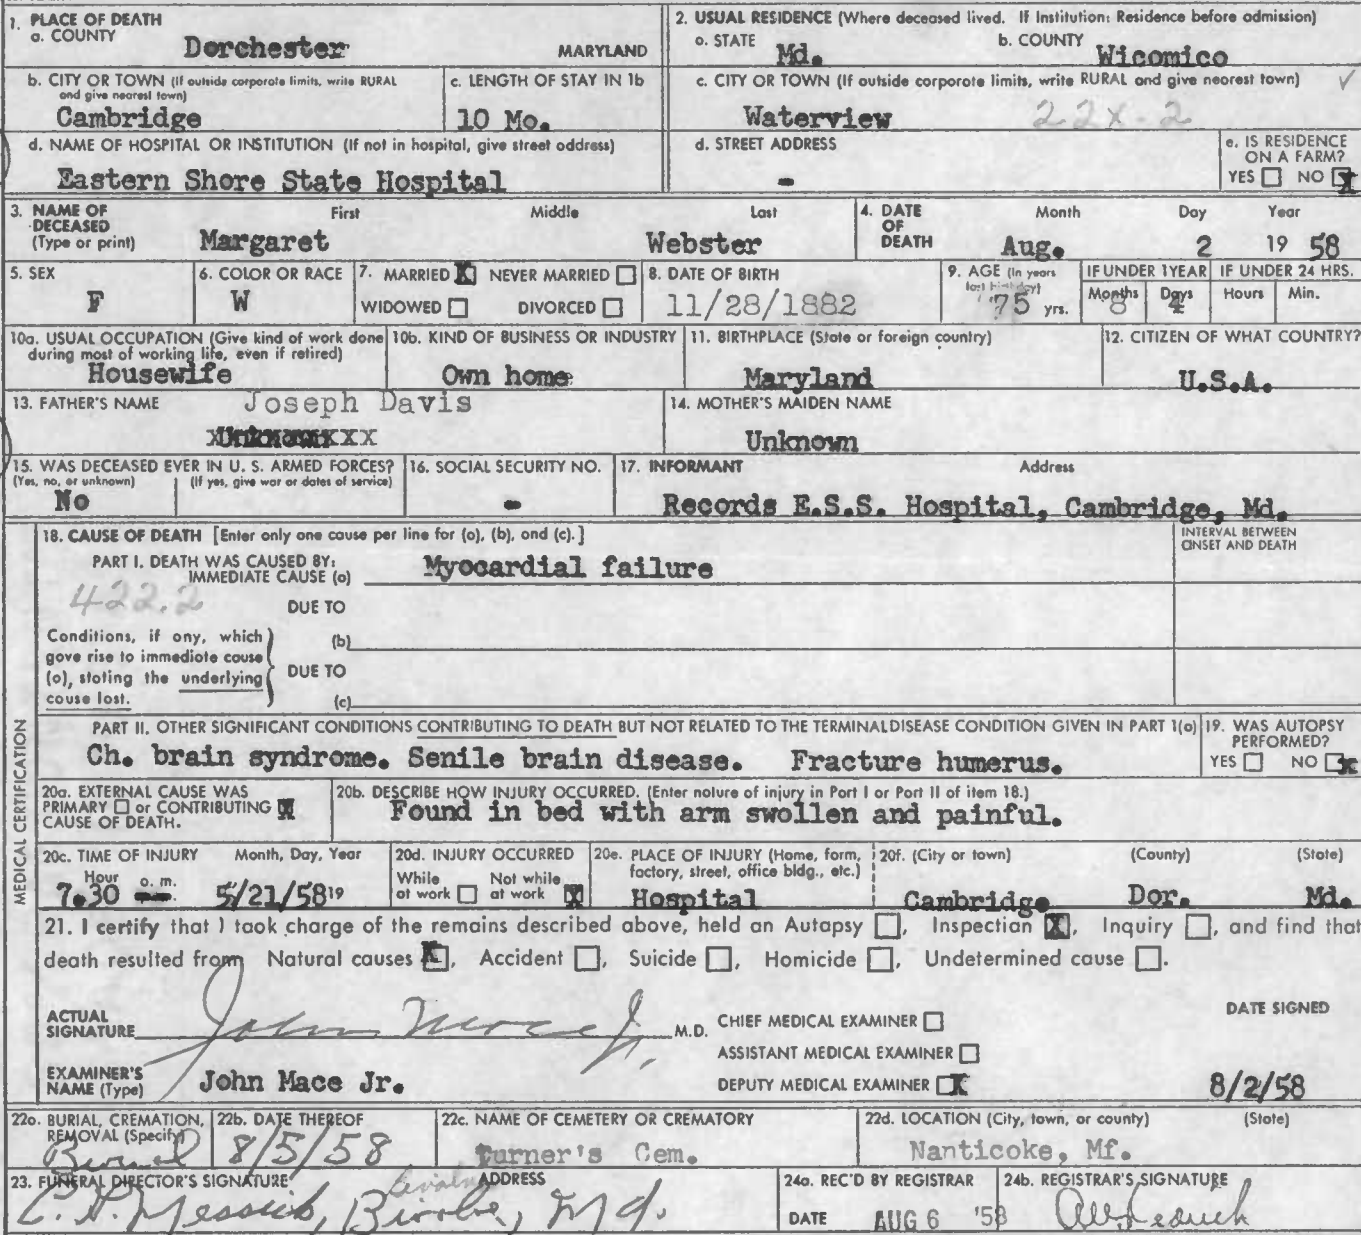 1. PLACE OF DEATH
a. COUNTY Dorchester MARYLAND
2. USUAL RESIDENCE (Where deceased lived. If Institution: Residence before admission)
a. STATE Md. b. COUNTY Wicomico
b. CITY OR TOWN (If outside corporate limits, write RURAL and give nearest town)
Cambridge
c. LENGTH OF STAY IN 1b
10 Mo.
c. CITY OR TOWN (If outside corporate limits, write RURAL and give nearest town) ✓
Waterview 22X-2
d. NAME OF HOSPITAL OR INSTITUTION (If not in hospital, give street address)
Eastern Shore State Hospital
d. STREET ADDRESS
-
e. IS RESIDENCE ON A FARM?
YES ☐ NO ☒
3. NAME OF DECEASED (Type or print)
First Middle Last
Margaret Webster
4. DATE OF DEATH
Month Day Year
Aug. 2 19 58
5. SEX
F
6. COLOR OR RACE
W
7. MARRIED ☒ NEVER MARRIED ☐
WIDOWED ☐ DIVORCED ☐
8. DATE OF BIRTH
11/28/1882
9. AGE (In years last birthday)
75 yrs.
IF UNDER 1 YEAR
Months 8 Days 4
IF UNDER 24 HRS.
Hours Min.
10a. USUAL OCCUPATION (Give kind of work done during most of working life, even if retired)
Housewife
10b. KIND OF BUSINESS OR INDUSTRY
Own home
11. BIRTHPLACE (State or foreign country)
Maryland
12. CITIZEN OF WHAT COUNTRY?
U.S.A.
13. FATHER'S NAME
Joseph Davis
xUnknownxxx
14. MOTHER'S MAIDEN NAME
Unknown
15. WAS DECEASED EVER IN U. S. ARMED FORCES?
(Yes, no, or unknown) (If yes, give war or dates of service)
No
16. SOCIAL SECURITY NO.
-
17. INFORMANT Address
Records E.S.S. Hospital, Cambridge, Md.
MEDICAL CERTIFICATION
18. CAUSE OF DEATH [Enter only one cause per line for (a), (b), and (c).]
INTERVAL BETWEEN ONSET AND DEATH
PART I. DEATH WAS CAUSED BY:
IMMEDIATE CAUSE (a) Myocardial failure
422.2
DUE TO
(b)
Conditions, if any, which gave rise to immediate cause (a), stating the underlying cause last.
DUE TO
(c)
PART II. OTHER SIGNIFICANT CONDITIONS CONTRIBUTING TO DEATH BUT NOT RELATED TO THE TERMINAL DISEASE CONDITION GIVEN IN PART I(a)
Ch. brain syndrome. Senile brain disease. Fracture humerus.
19. WAS AUTOPSY PERFORMED?
YES ☐ NO ☒
20a. EXTERNAL CAUSE WAS PRIMARY ☐ or CONTRIBUTING ☒ CAUSE OF DEATH.
20b. DESCRIBE HOW INJURY OCCURRED. (Enter nature of injury in Part I or Part II of item 18.)
Found in bed with arm swollen and painful.
20c. TIME OF INJURY Month, Day, Year
Hour a. m.
7.30 5/21/58 19
20d. INJURY OCCURRED
While at work ☐ Not while at work ☒
20e. PLACE OF INJURY (Home, form, factory, street, office bldg., etc.)
Hospital
20f. (City or town) (County) (State)
Cambridge Dor. Md.
21. I certify that I took charge of the remains described above, held an Autapsy ☐, Inspection ☒, Inquiry ☐, and find that
death resulted from Natural causes ☒, Accident ☐, Suicide ☐, Homicide ☐, Undetermined cause ☐.
ACTUAL SIGNATURE John Mace Jr. M.D.
CHIEF MEDICAL EXAMINER ☐
ASSISTANT MEDICAL EXAMINER ☐
DEPUTY MEDICAL EXAMINER ☒
DATE SIGNED
8/2/58
EXAMINER'S NAME (Type) John Mace Jr.
22a. BURIAL, CREMATION, REMOVAL (Specify)
Burial
22b. DATE THEREOF
8/5/58
22c. NAME OF CEMETERY OR CREMATORY
Turner's Cem.
22d. LOCATION (City, town, or county) (State)
Nanticoke, Mf.
23. FUNERAL DIRECTOR'S SIGNATURE ADDRESS
C. H. Messick, Bivalve, Md.
24a. REC'D BY REGISTRAR
DATE AUG 6 '58
24b. REGISTRAR'S SIGNATURE